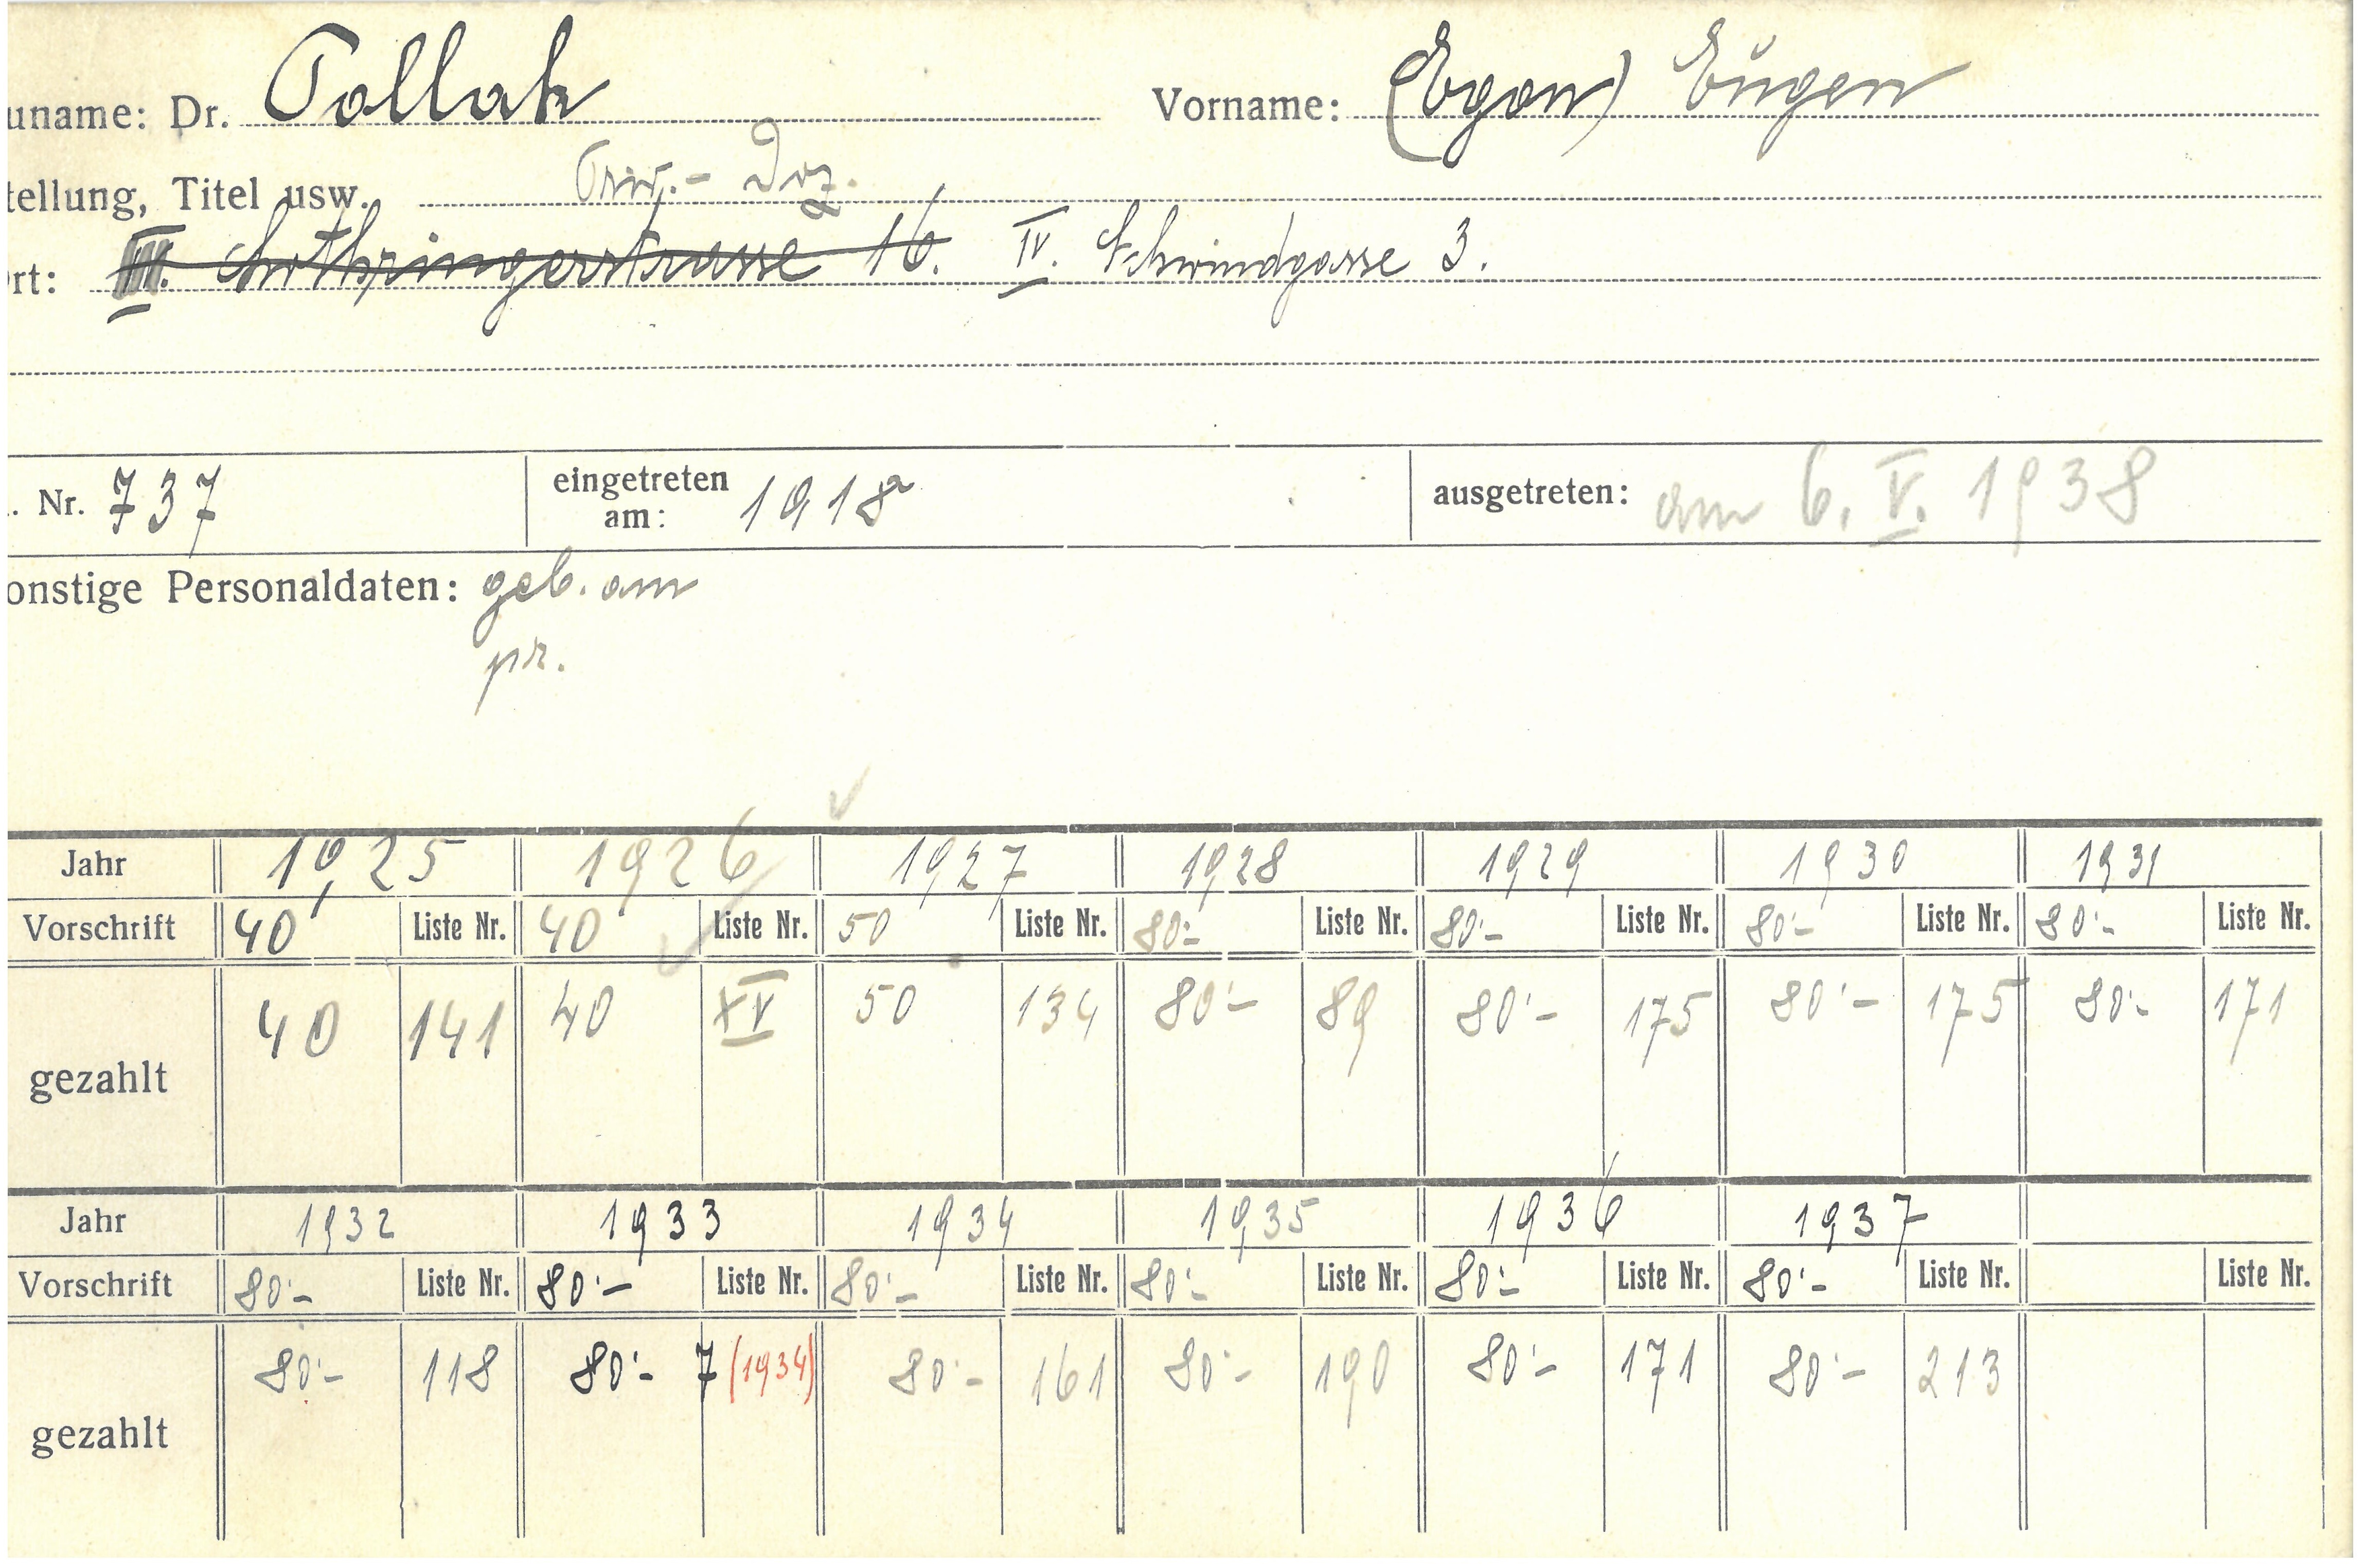 uname: Dr. Pollak Vorname: (Egon) Eugen
tellung, Titel usw. Priv.- Doz.
rt: III. Lothringerstrasse 16. IV. Schwindgasse 3.
. Nr. 737 eingetreten am: 1918 ausgetreten: am 6. V. 1938
onstige Personaldaten: geb. am
pr.
Jahr 1925 1926 1927 1928 1929 1930 1931
Vorschrift 40 Liste Nr. 40 Liste Nr. 50 Liste Nr. 80'- Liste Nr. 80'- Liste Nr. 80'- Liste Nr. 80'- Liste Nr.
gezahlt 40 141 40 XV 50 134 80'- 89 80'- 175 80'- 175 80'- 171
Jahr 1932 1933 1934 1935 1936 1937
Vorschrift 80'- Liste Nr. 80'- Liste Nr. 80'- Liste Nr. 80'- Liste Nr. 80'- Liste Nr. 80'- Liste Nr. Liste Nr.
gezahlt 80'- 118 80'- 7 (1934) 80'- 161 80'- 190 80'- 171 80'- 213